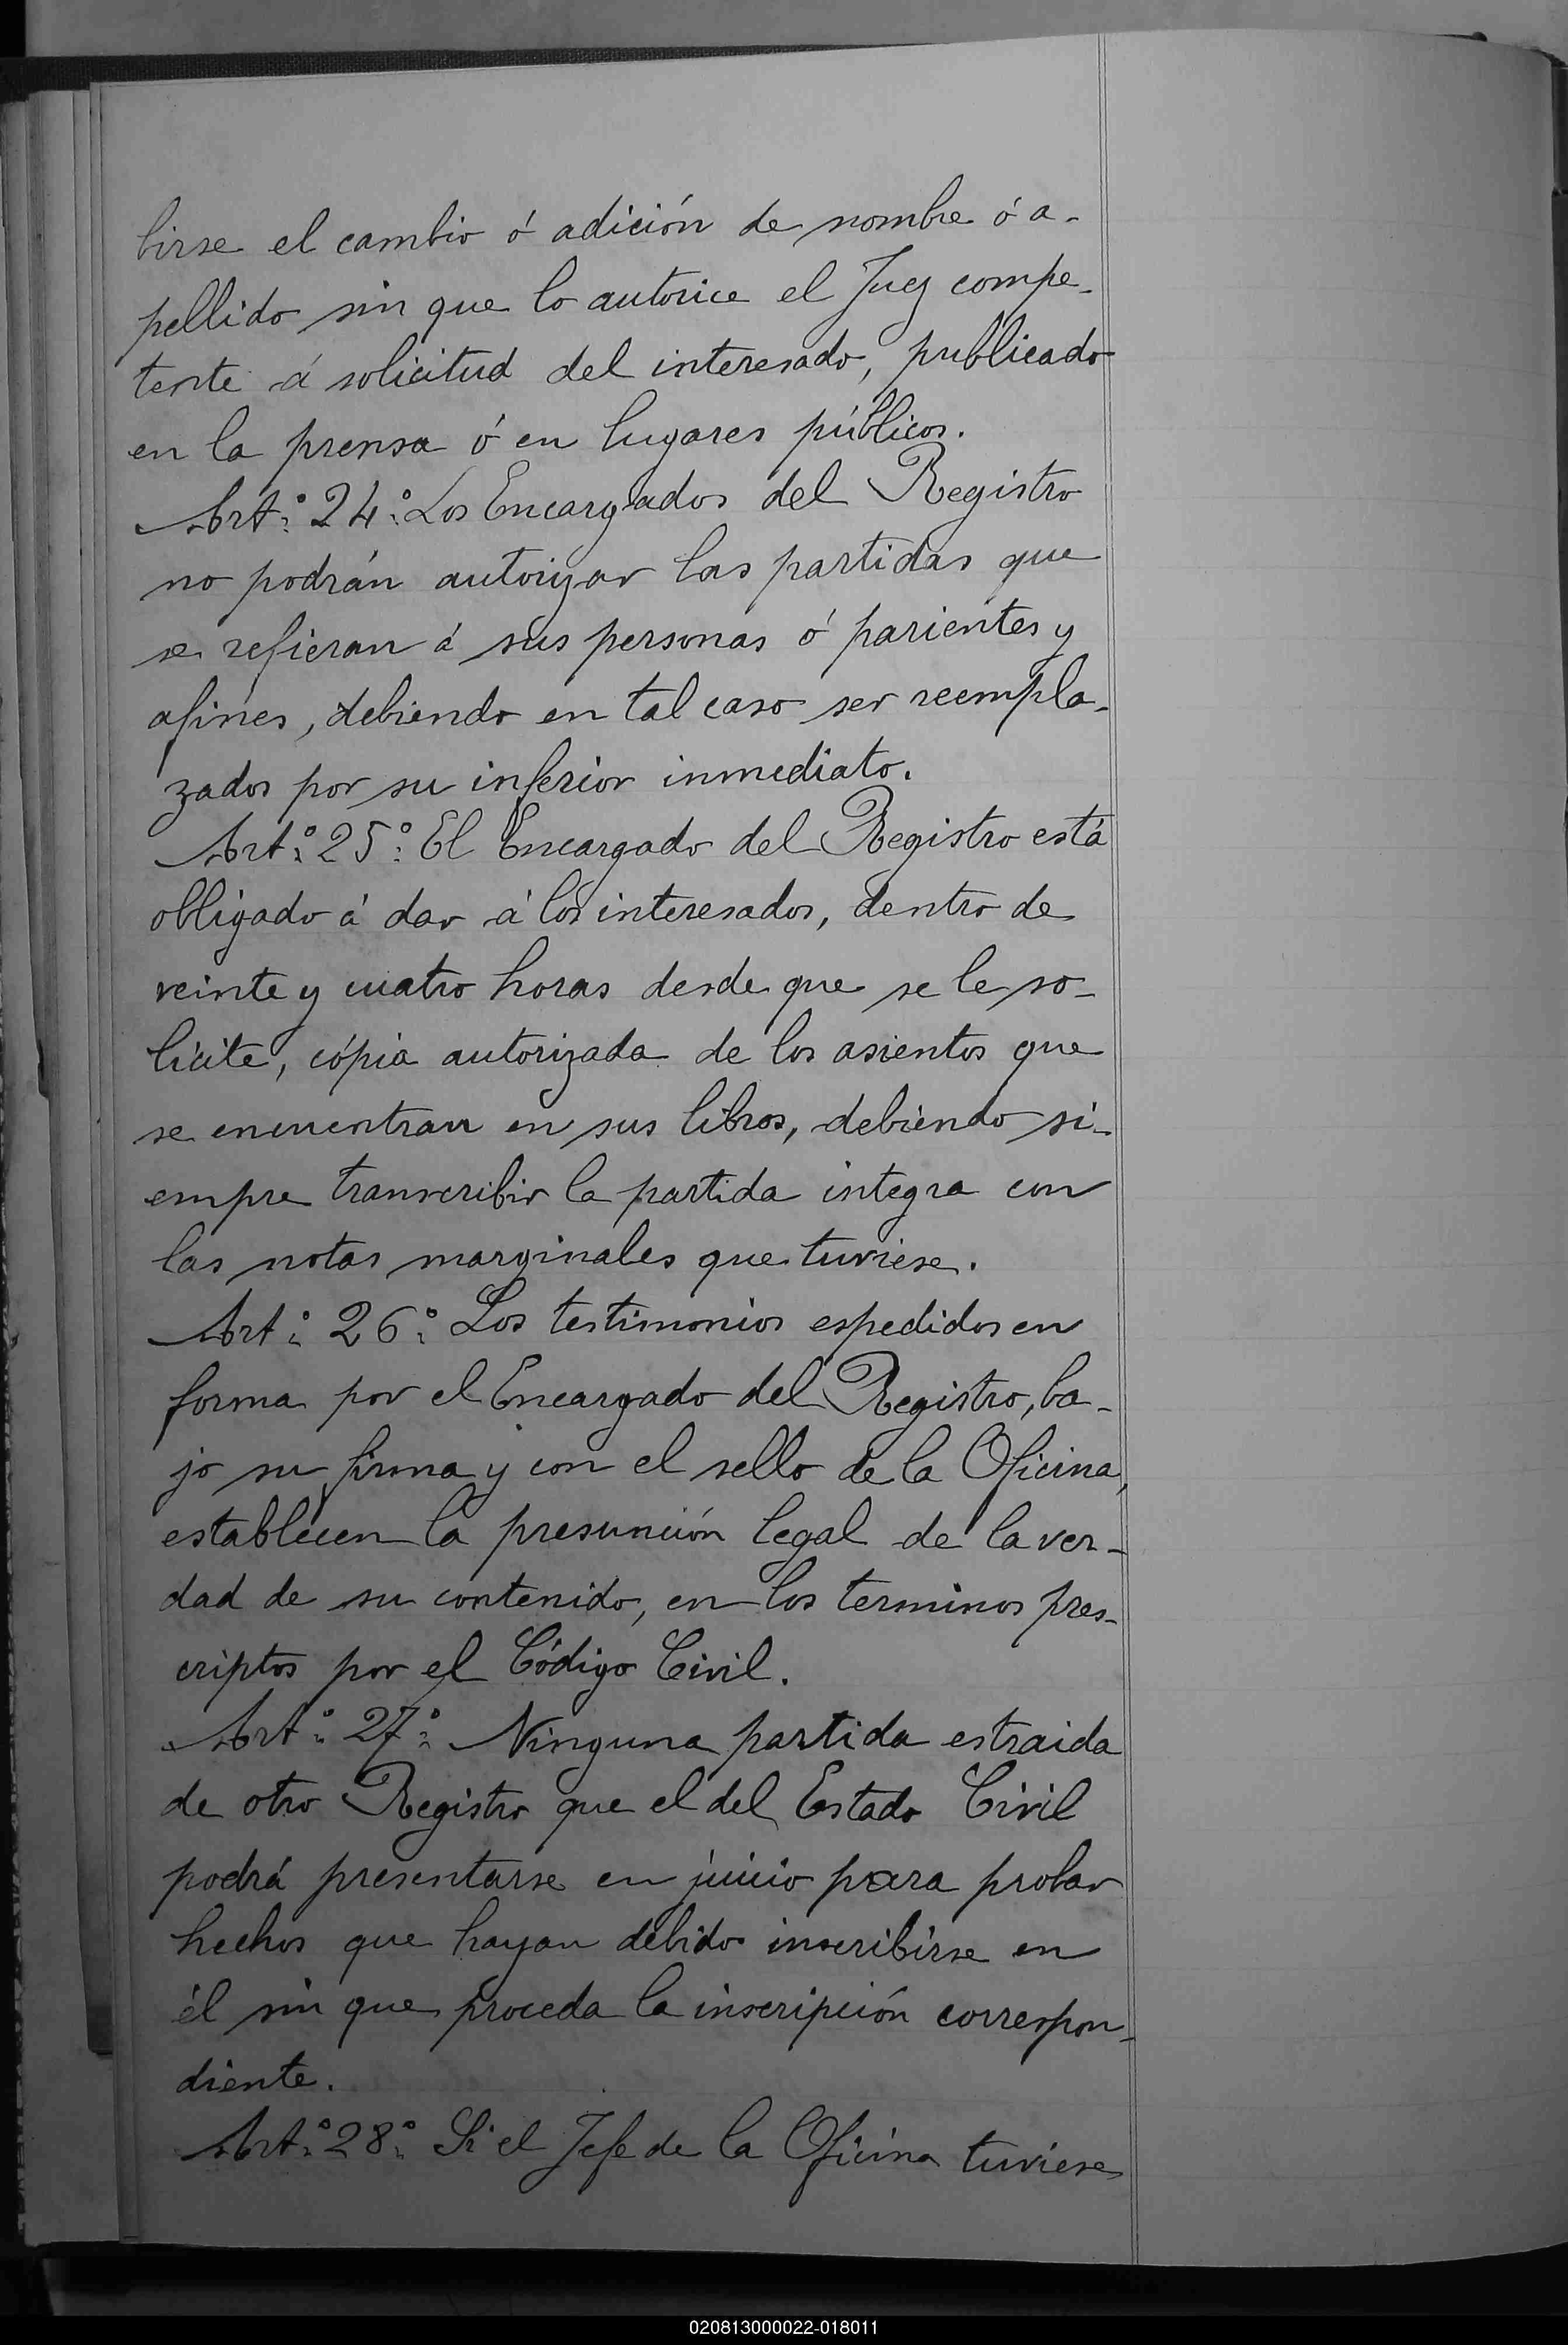 birse el cambio ó adición de nombre ó a-
pellido sin que lo autorice el Juez compe-
tente á solicitud del interesado, publicado
en la prensa ó en lugares públicos.
Art.º 24.º Los Encargados del Registro
no podrán autorizar las partidas que
se refieran á sus personas ó parientes y
afines, debiendo en tal caso ser reempla-
zados por su inferior inmediato.
Art.º 25.º El Encargado del Registro está
obligado á dar á los interesados, dentro de
veinte y cuatro horas desde que se le so-
licite, cópia autorizada de los asientos que
se encuentran en sus libros, debiendo si-
empre transcribir la partida integra con
las notas marginales que tuviese.
Art.º 26.º Los testimonios espedidos en
forma por el Encargado del Registro, ba-
jo su firma y con el sello de la Oficina,
establecen la presunción legal de la ver-
dad de su contenido, en los terminos pres-
criptos por el Código Civil.
Art.º 27.º Ninguna partida estraida
de otro Registro que el del Estado Civil
podrá presentarse en juicio para probar
hechos que hayan debido inscribirse en
él sin que proceda la inscripción correspon-
diente.
Art.º 28.º Si el Jefe de la Oficina tuviese
020813000022-018011